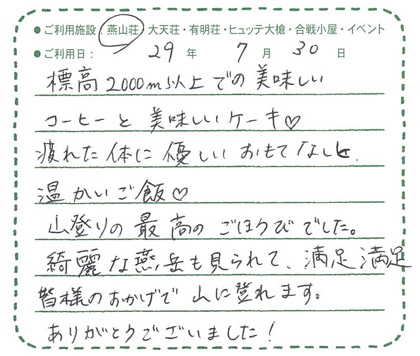 ●ご利用施設 燕山荘・大天荘・有明荘・ヒュッテ大槍・合戦小屋・イベント
●ご利用日： 29年 7月 30日
標高2000m以上での美味しい
コーヒーと美味しいケーキ♡
疲れた体に優しいおもてなしと、
温かいご飯♡
山登りの最高のごほうびでした。
綺麗な燕岳も見られて、満足満足
皆様のおかげで山に登れます。
ありがとうございました！